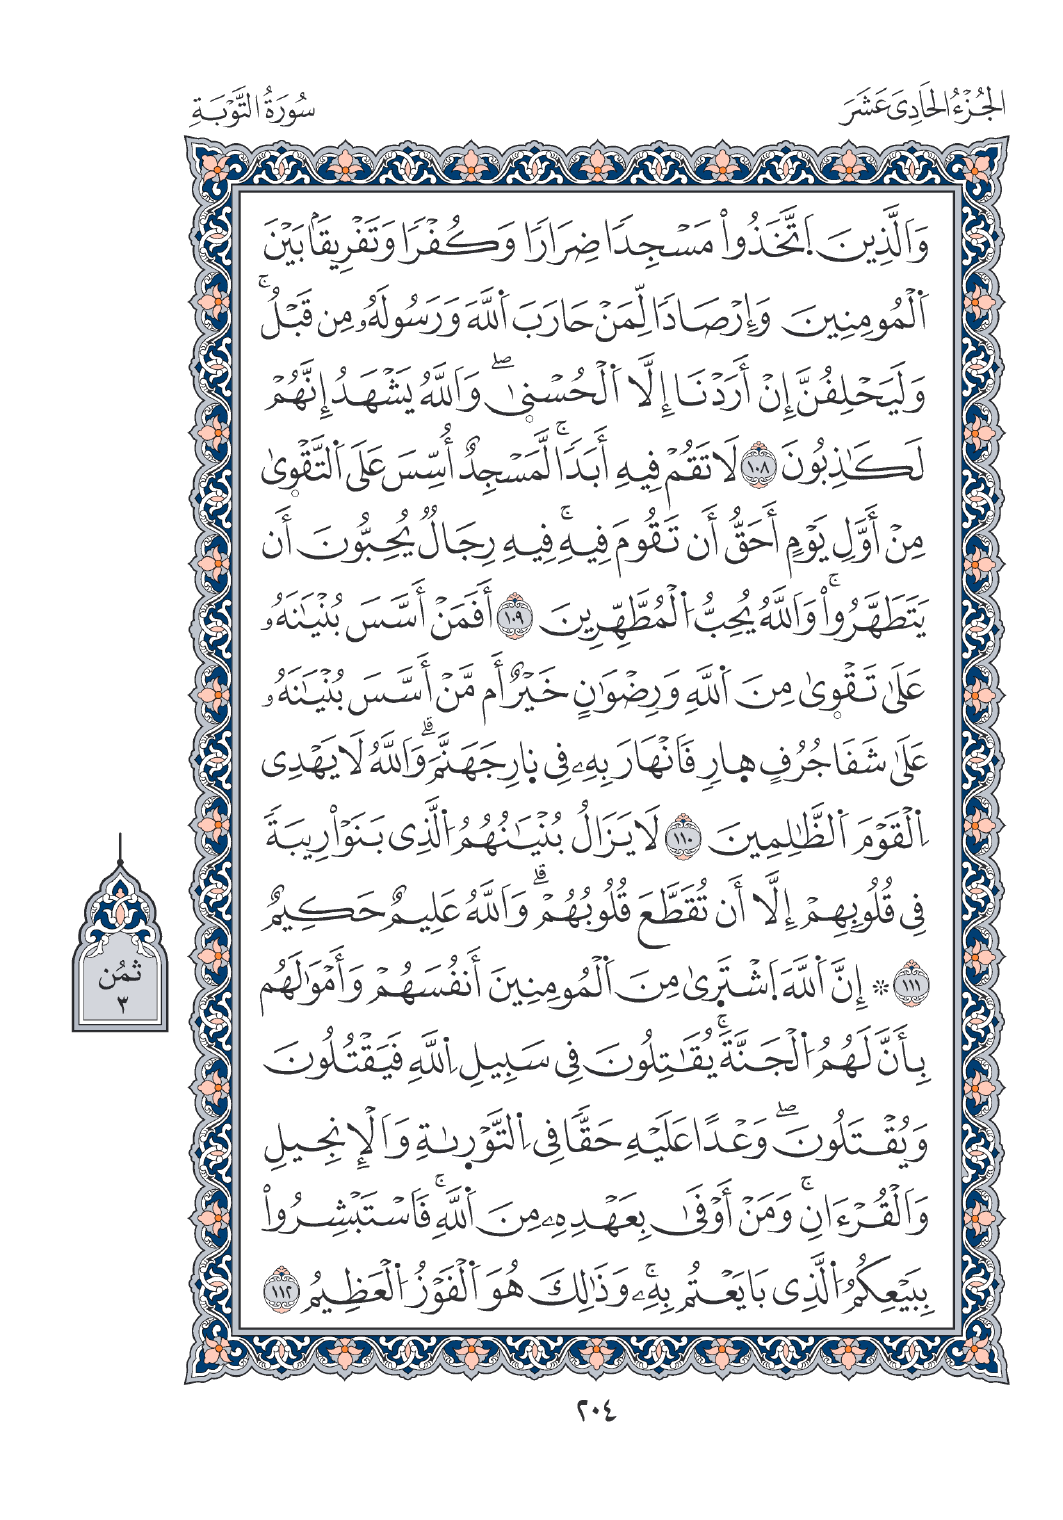 الجُزْءُ الحَادِىَ عَشَرَ
سُورَةُ التَّوْبَةِ
وَاَلَّذِينَ اَتَّخَذُواْ مَسْجِدٗا ضِرَارٗا وَكُفْرٗا وَتَفْرِيقَۢا بَيْنَ
اَ۬لْمُومِنِينَ وَإِرْصَادٗا لِّمَنْ حَارَبَ اَ۬للَّهَ وَرَسُولَهُۥ مِن قَبْلُۚ
وَلَيَحْلِفُنَّ إِنْ أَرَدْنَا إِلَّا اَ۬لْحُسْنۭيٰۖ وَاَللَّهُ يَشْهَدُ إِنَّهُمْ
لَكَٰذِبُونَ ١٠٨ لَا تَقُمْ فِيهِ أَبَدٗاۚ لَّمَسْجِدٌ أُسِّسَ عَلَى اَ۬لتَّقْوۭيٰ
مِنْ أَوَّلِ يَوْمٍ أَحَقُّ أَن تَقُومَ فِيهِۚ فِيهِ رِجَالٞ يُحِبُّونَ أَن
يَتَطَهَّرُواْۚ وَاَللَّهُ يُحِبُّ اُ۬لْمُطَّهِّرِينَ ١٠٩ أَفَمَنْ أَسَّسَ بُنْيَٰنَهُۥ
عَلَىٰ تَقْوۭيٰ مِنَ اَ۬للَّهِ وَرِضْوَٰنٍ خَيْرٌ أَم مَّنْ أَسَّسَ بُنْيَٰنَهُۥ
عَلَىٰ شَفَا جُرُفٍ ه۪ارٖ فَانْهَارَ بِهِۦ فِى ن۪ارِ جَهَنَّمَۗ وَاَللَّهُ لَا يَهْدِى
اِ۬لْقَوْمَ اَ۬لظَّٰلِمِينَ ١١٠ لَا يَزَالُ بُنْيَٰنُهُمُ اُ۬لَّذِى بَنَوْاْ رِيبَةٗ
فِى قُلُوبِهِمْ إِلَّا أَن تُقَطَّعَ قُلُوبُهُمْۗ وَاَللَّهُ عَلِيمٌ حَكِيمٌ
١١١ ۞ إِنَّ اَ۬للَّهَ اَ۪شْتَر۪يٰ مِنَ اَ۬لْمُومِنِينَ أَنفُسَهُمْ وَأَمْوَٰلَهُم
بِأَنَّ لَهُمُ اُ۬لْجَنَّةَۚ يُقَٰتِلُونَ فِى سَبِيلِ اِ۬للَّهِ فَيَقْتُلُونَ
وَيُقْتَلُونَۖ وَعْدًا عَلَيْهِ حَقّٗا فِى اِ۬لتَّوْر۪يٰةِ وَاَلْإِنجِيلِ
وَاَلْقُرْءَانِۚ وَمَنْ أَوْفَىٰ بِعَهْدِهِۦ مِنَ اَ۬للَّهِۚ فَاسْتَبْشِرُواْ
بِبَيْعِكُمُ اُ۬لَّذِى بَايَعْتُم بِهِۦۚ وَذَٰلِكَ هُوَ اَ۬لْفَوْزُ اُ۬لْعَظِيمُ ١١٢
ثمُن
٣
٢٠٤